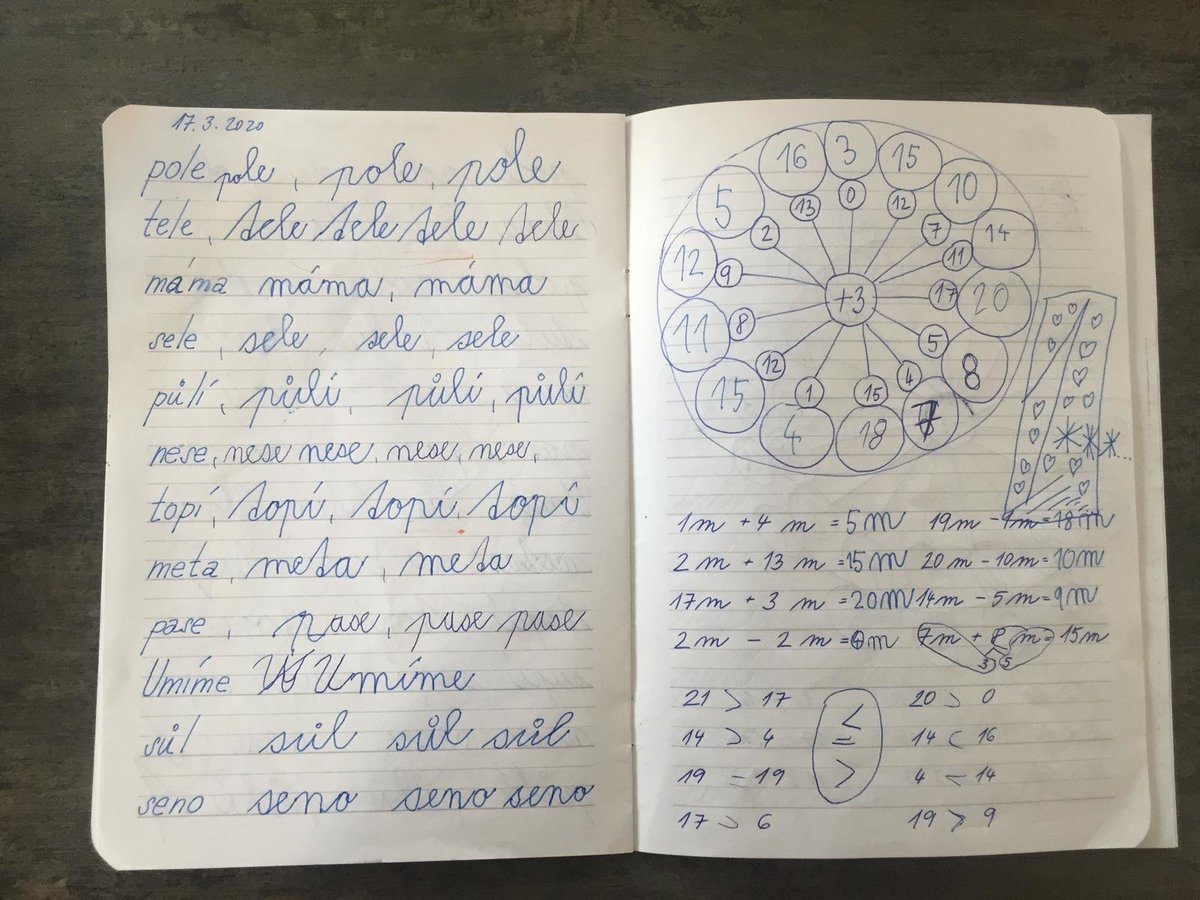 17.3.2020
pole pole, pole, pole
tele, tele tele tele tele
máma máma, máma
sele, sele, sele, sele
půlí, půlí, půlí, půlí
nese, nese nese, nese, nese,
topí, topí, topí, topí
meta, meta, meta
pase, pase, pase pase
Umíme U Umíme
sůl sůl sůl sůl
seno seno seno seno
16 3 15
5 10
13 0 12
2 7 14
12 9 11
+3 17 20
11 8 5
12 4 8
15 1 15 7
4 18
1m + 4 m = 5m 19m - 1m = 18m
2 m + 13 m = 15m 20m - 10m = 10m
17m + 3 m = 20m 14m - 5m = 9m
2 m - 2 m = 0m 7m + 8 m = 15m
3 5
21 > 17 20 > 0
<
14 > 4 = 14 < 16
19 = 19 > 4 < 14
17 > 6 19 > 9